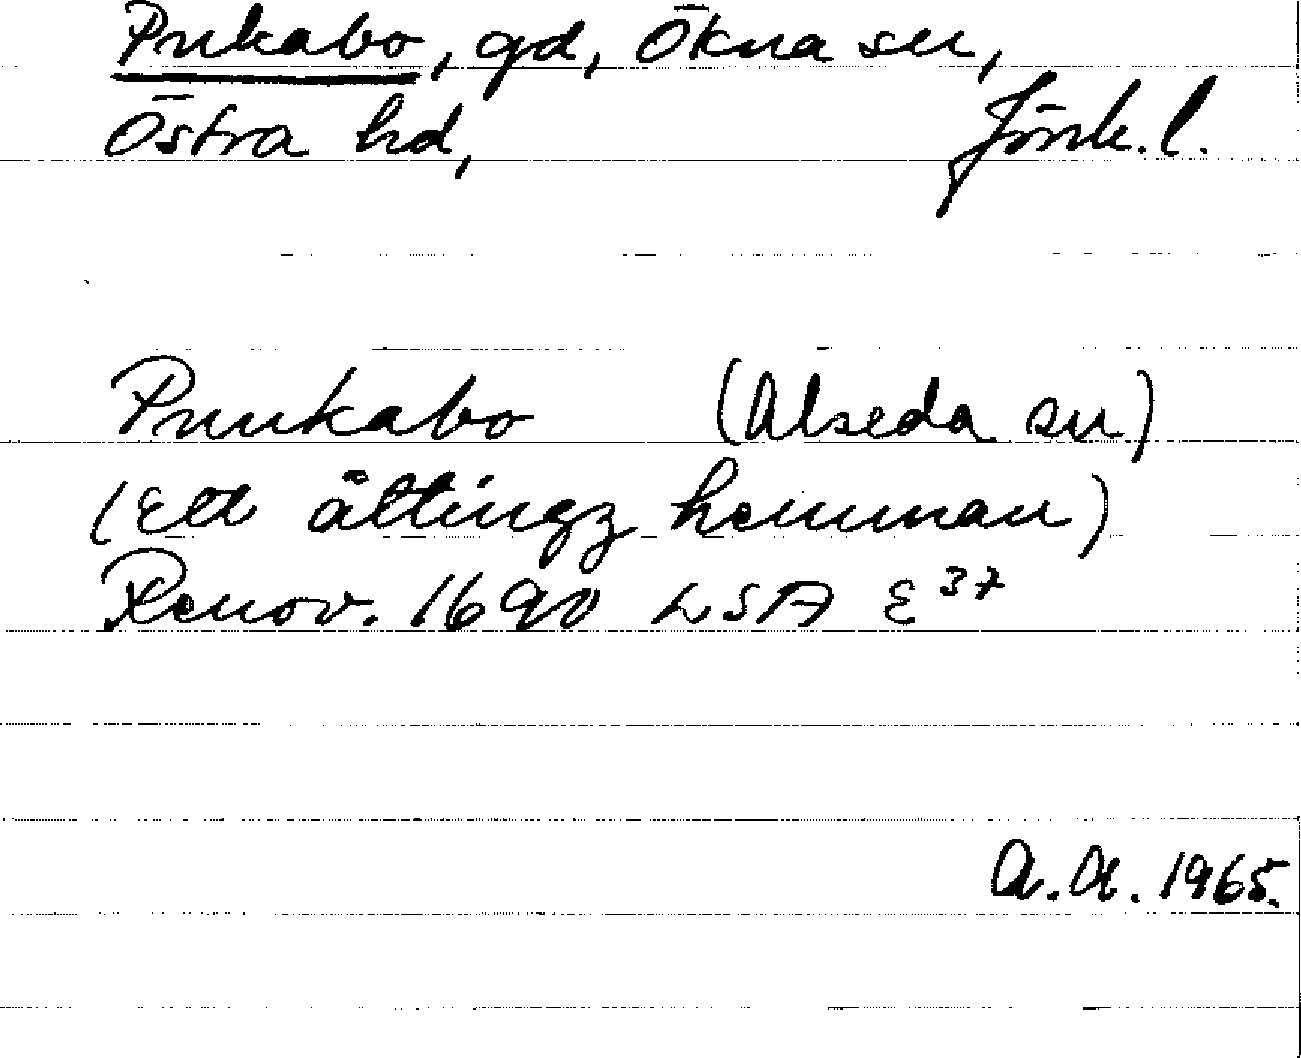 Pukabo, gd, Ökna sn,
Östra hd, Jönk. l.
Puukabo (Alseda sn)
(Ett åttingz hemman)
Renov. 1690 LSA E 37
A.A. 1965.